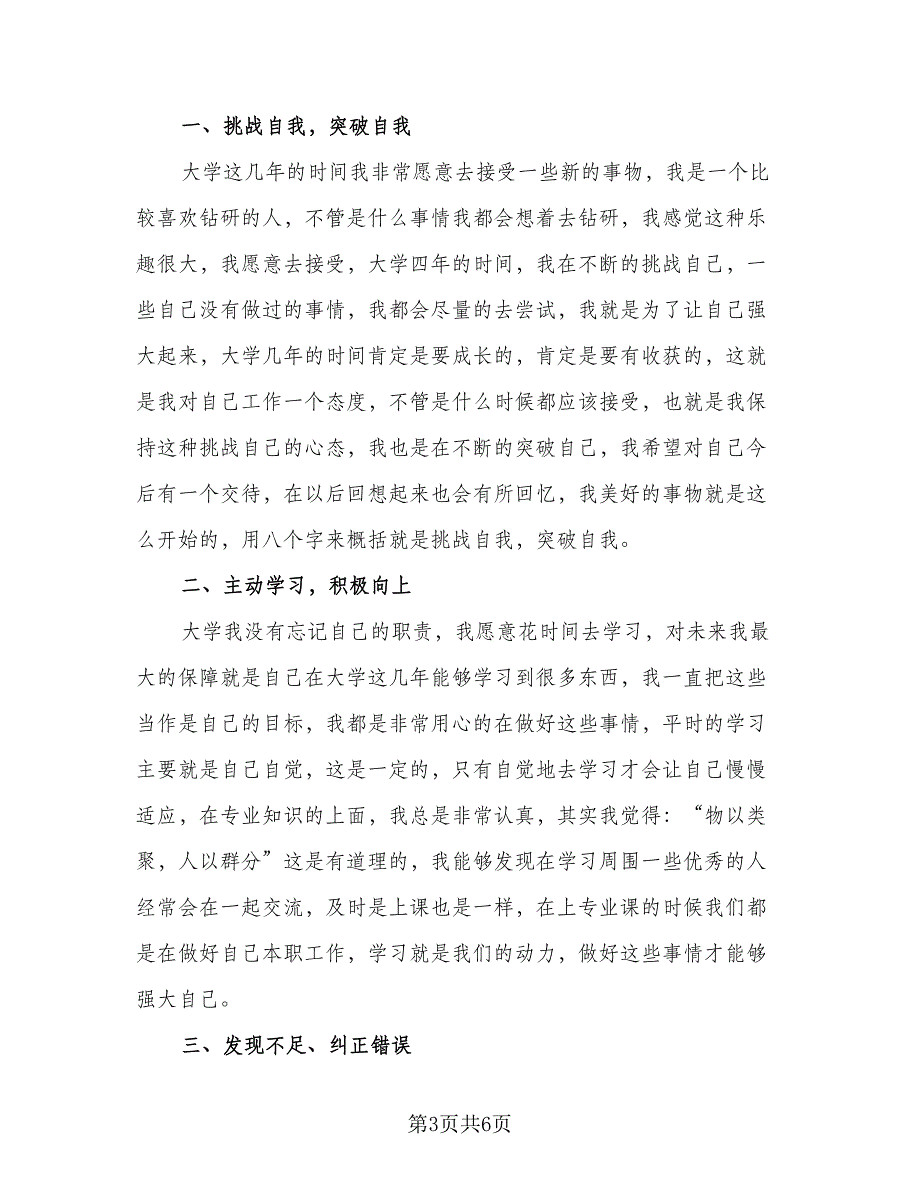 一、挑战自我，突破自我
大学这几年的时间我非常愿意去接受一些新的事物，我是一个比
较喜欢钻研的人，不管是什么事情我都会想着去钻研，我感觉这种乐
趣很大，我愿意去接受，大学四年的时间，我在不断的挑战自己，一
些自己没有做过的事情，我都会尽量的去尝试，我就是为了让自己强
大起来，大学几年的时间肯定是要成长的，肯定是要有收获的，这就
是我对自己工作一个态度，不管是什么时候都应该接受，也就是我保
持这种挑战自己的心态，我也是在不断的突破自己，我希望对自己今
后有一个交待，在以后回想起来也会有所回忆，我美好的事物就是这
么开始的，用八个字来概括就是挑战自我，突破自我。
二、主动学习，积极向上
大学我没有忘记自己的职责，我愿意花时间去学习，对未来我最
大的保障就是自己在大学这几年能够学习到很多东西，我一直把这些
当作是自己的目标，我都是非常用心的在做好这些事情，平时的学习
主要就是自己自觉，这是一定的，只有自觉地去学习才会让自己慢慢
适应，在专业知识的上面，我总是非常认真，其实我觉得：“物以类
聚，人以群分”这是有道理的，我能够发现在学习周围一些优秀的人
经常会在一起交流，及时是上课也是一样，在上专业课的时候我们都
是在做好自己本职工作，学习就是我们的动力，做好这些事情才能够
强大自己。
三、发现不足、纠正错误
第3页共6页